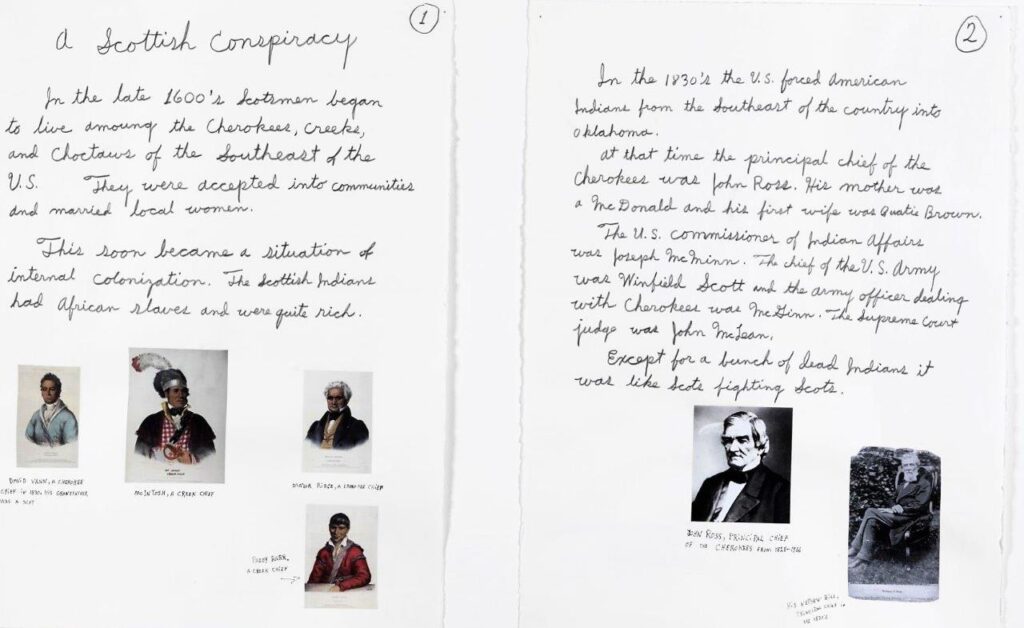 1
A Scottish Conspiracy
In the late 1600's Scotsmen began
to live amoung the Cherokees, Creeks,
and Choctaws of the Southeast of the
U.S. They were accepted into communities
and married local women.
This soon became a situation of
internal colonization. The Scottish Indians
had African slaves and were quite rich.
DAVID VANN, A CHEROKEE
CHIEF IN HIS GRANDFATHER
WAS A SCOT
McINTOSH, A CREEK CHIEF
RIDGE, A CHEROKEE CHIEF
A CREEK CHIEF
2
In the 1830's the U.S. forced American
Indians from the Southeast of the country into
Oklahoma.
At that time the principal chief of the
Cherokees was John Ross. His mother was
a McDonald and his first wife was Quatie Brown.
The U.S. commissioner of Indian Affairs
was Joseph McMinn. The chief of the U.S. Army
was Winfield Scott and the army officer dealing
with Cherokees was McGinn. The Supreme Court
judge was John McLean.
Except for a bunch of dead Indians it
was like Scots fighting Scots.
JOHN ROSS, PRINCIPAL CHIEF
OF THE CHEROKEES FROM 1828-1866
HIS NEPHEW BILL,
PRINCIPAL CHIEF IN